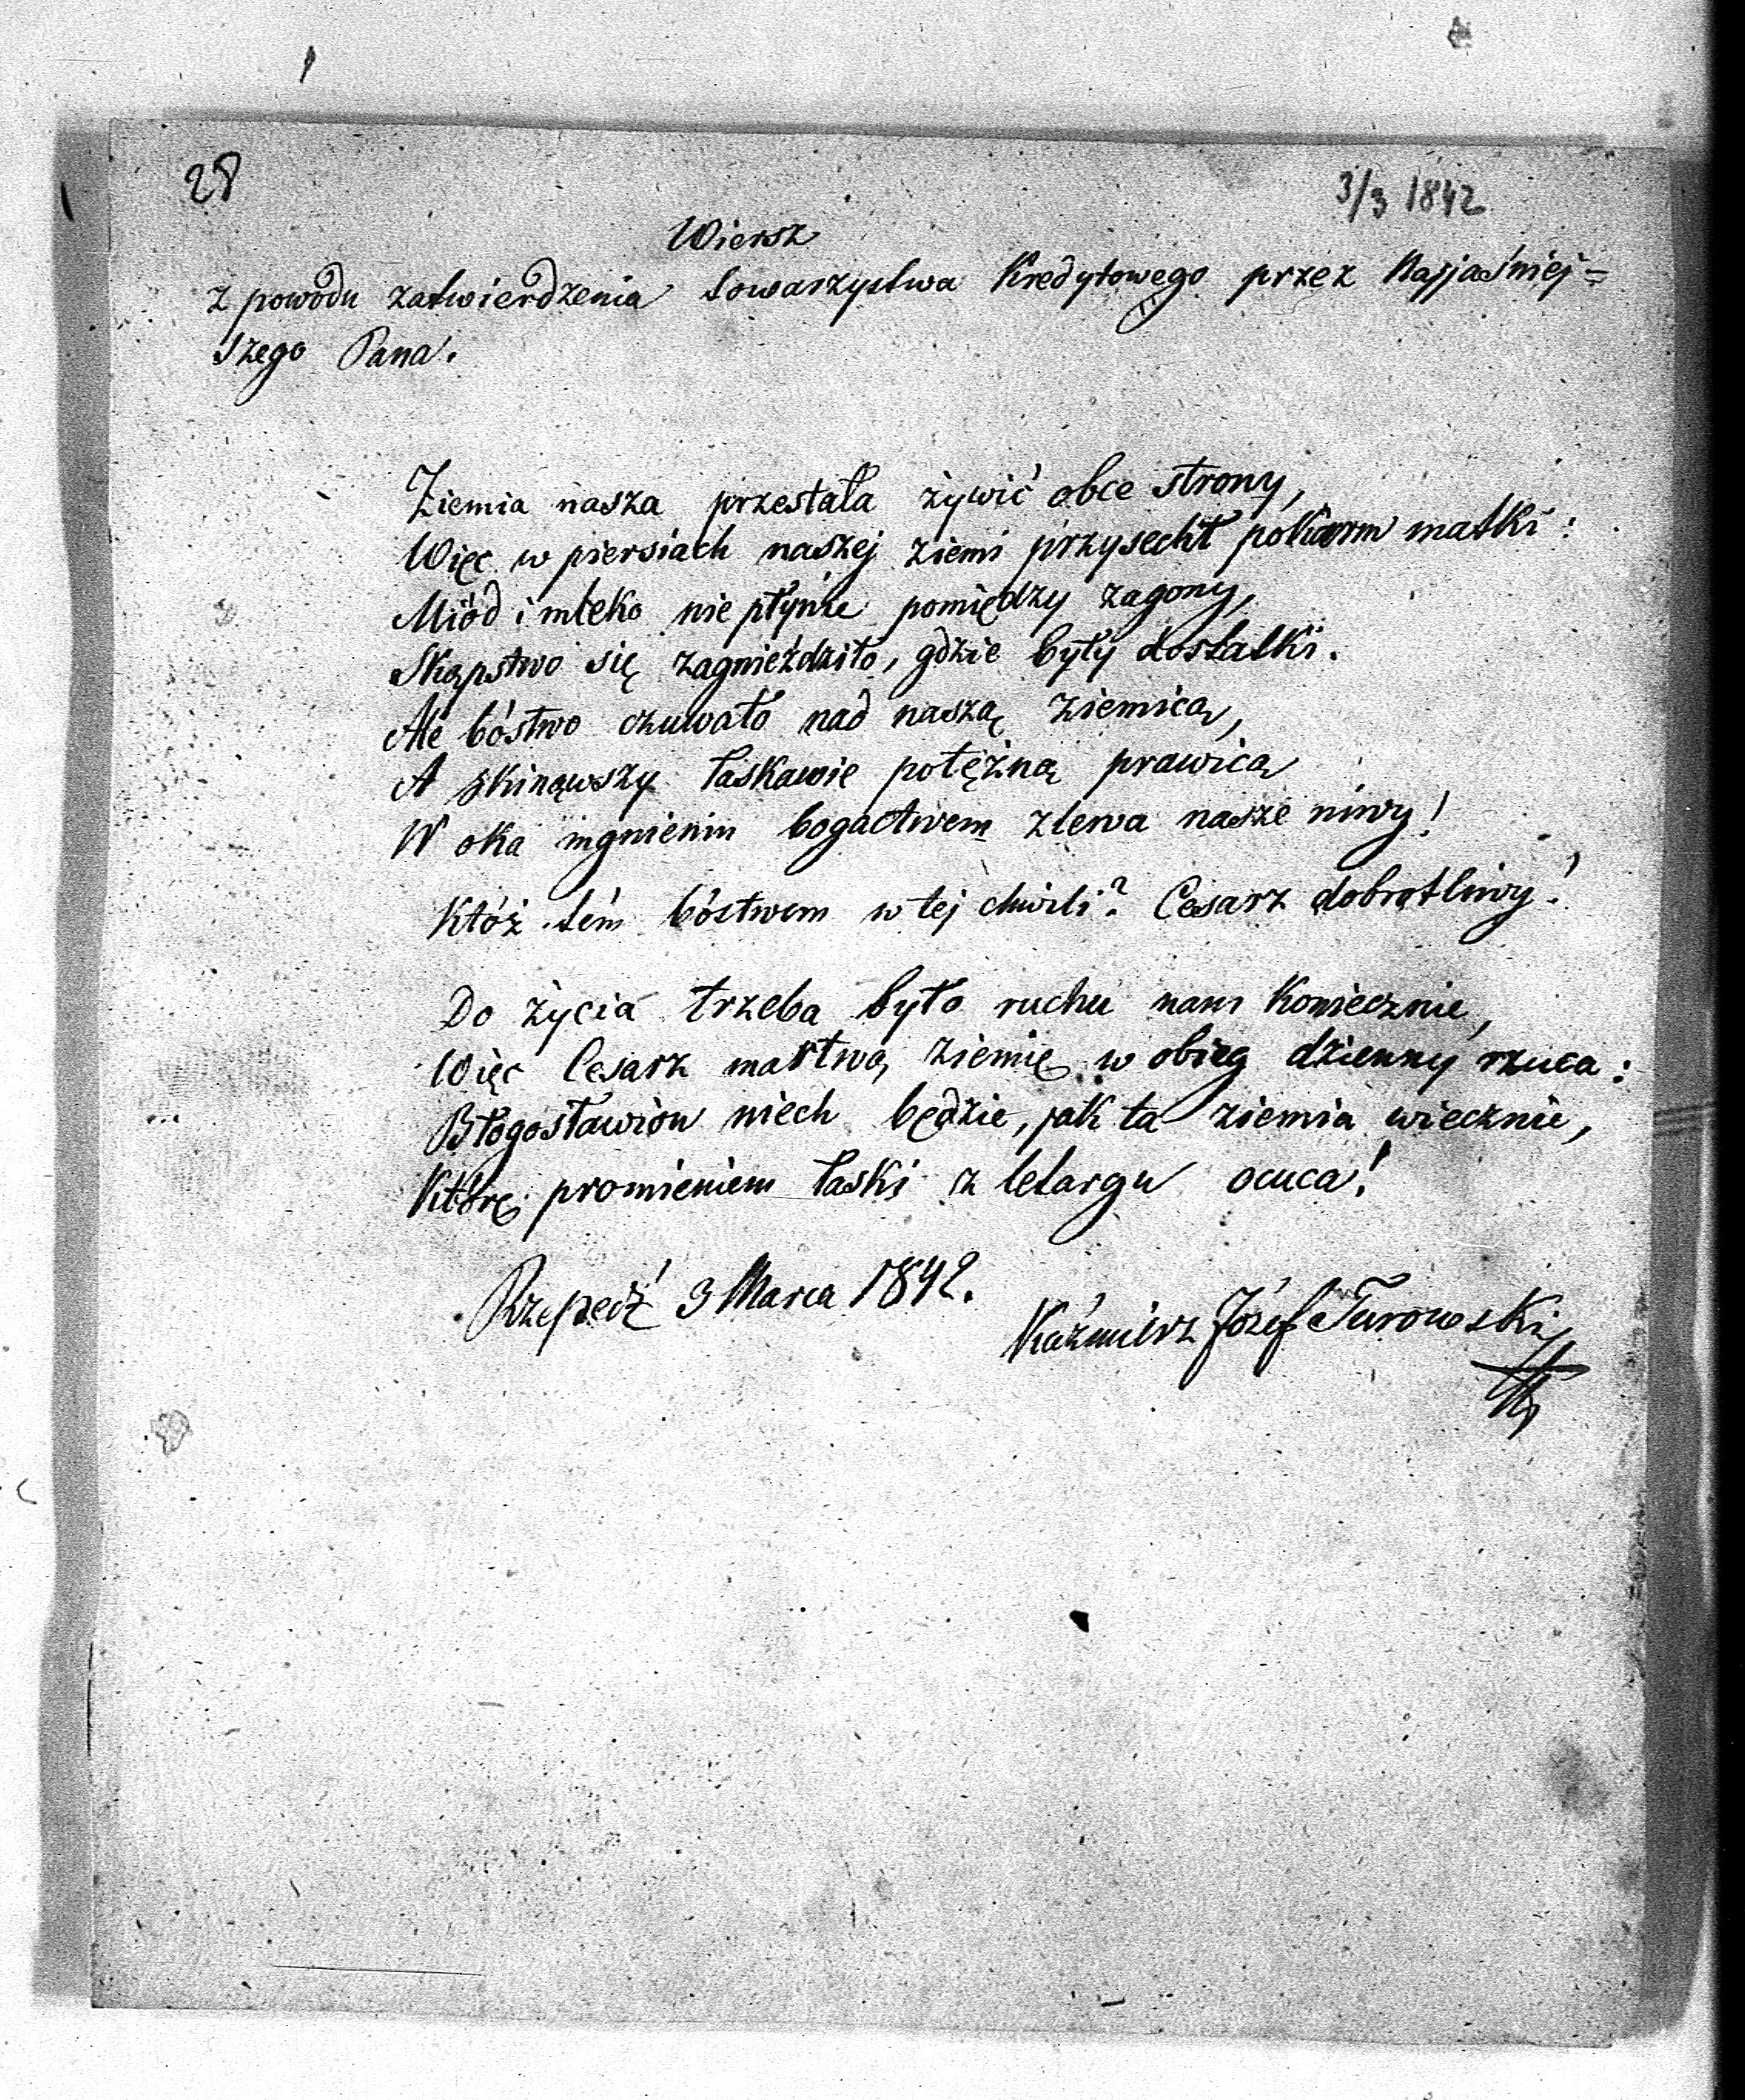 28
3/3 1842
Wiersz
z powodu zatwierdzenia towarzystwa Kredytowego przez Najjaśniej=
szego Pana.
Ziemia nasza przestała żywić obce strony,
Więc w piersiach naszej ziemi przysechł pokarm matki:
Miód i mleko nie płynie pomiędzy zagony,
Skąpstwo się zagnieździło, gdzie były dostatki.
Ale bóstwo czuwało nad naszą ziemicą,
A skinąwszy łaskawie potężną prawicą
W oka mgnieniu bogactwem zlewa nasze niwy!
Któż tém bóstwem w tej chwili? Cesarz dobrotliwy!
Do życia trzeba było ruchu nam koniecznie,
Więc Cesarz martwą ziemię w obieg dzienny rzuca:
Błogosławion niech będzie, jak ta ziemia wiecznie,
Którę promieniem łaski z letargu ocuca!
Rzepedź 3 Marca 1842.
Kaźmierz Józef Turowski